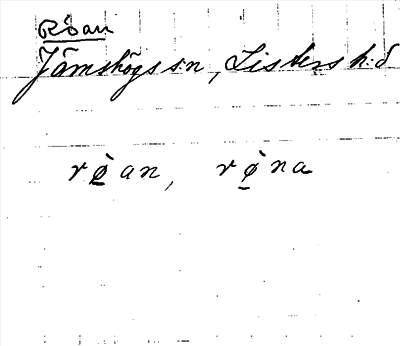 Röan
Jämshögs s:n, Listers h:d
rø̠̀an, rø̠̀na